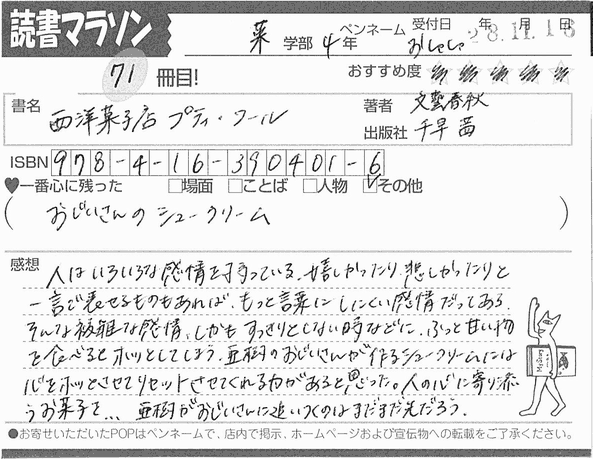 読書マラソン
菜 学部 4年 ペンネーム おしゅし 受付日 年 月 日 28.11.16
71 冊目! おすすめ度 ★★★★★
書名 西洋菓子店 プティ・フール 著者 文藝春秋
出版社 千早茜
ISBN 978-4-16-390401-6
♥一番心に残った □場面 □ことば □人物 ☑その他
( おじいさんの シュークリーム )
感想 人はいろいろな感情を持っている。嬉しかったり、悲しかったりと
一言で表せるものもあれば、もっと言葉に しにくい感情だってある。
そんな複雑な感情、しかも すっきりとしない時などに、ふっと甘い物
を食べるとホッとしてしまう。亜樹のおじいさんが作るシュークリームには
心をホッとさせてリセットさせてくれる力があると思った。人の心に寄り添
うお菓子を… 亜樹がおじいさんに追いつくのは まだまだ先だろう。
●お寄せいただいたPOPはペンネームで、店内で掲示、ホームページおよび宣伝物への転載をご了承ください。